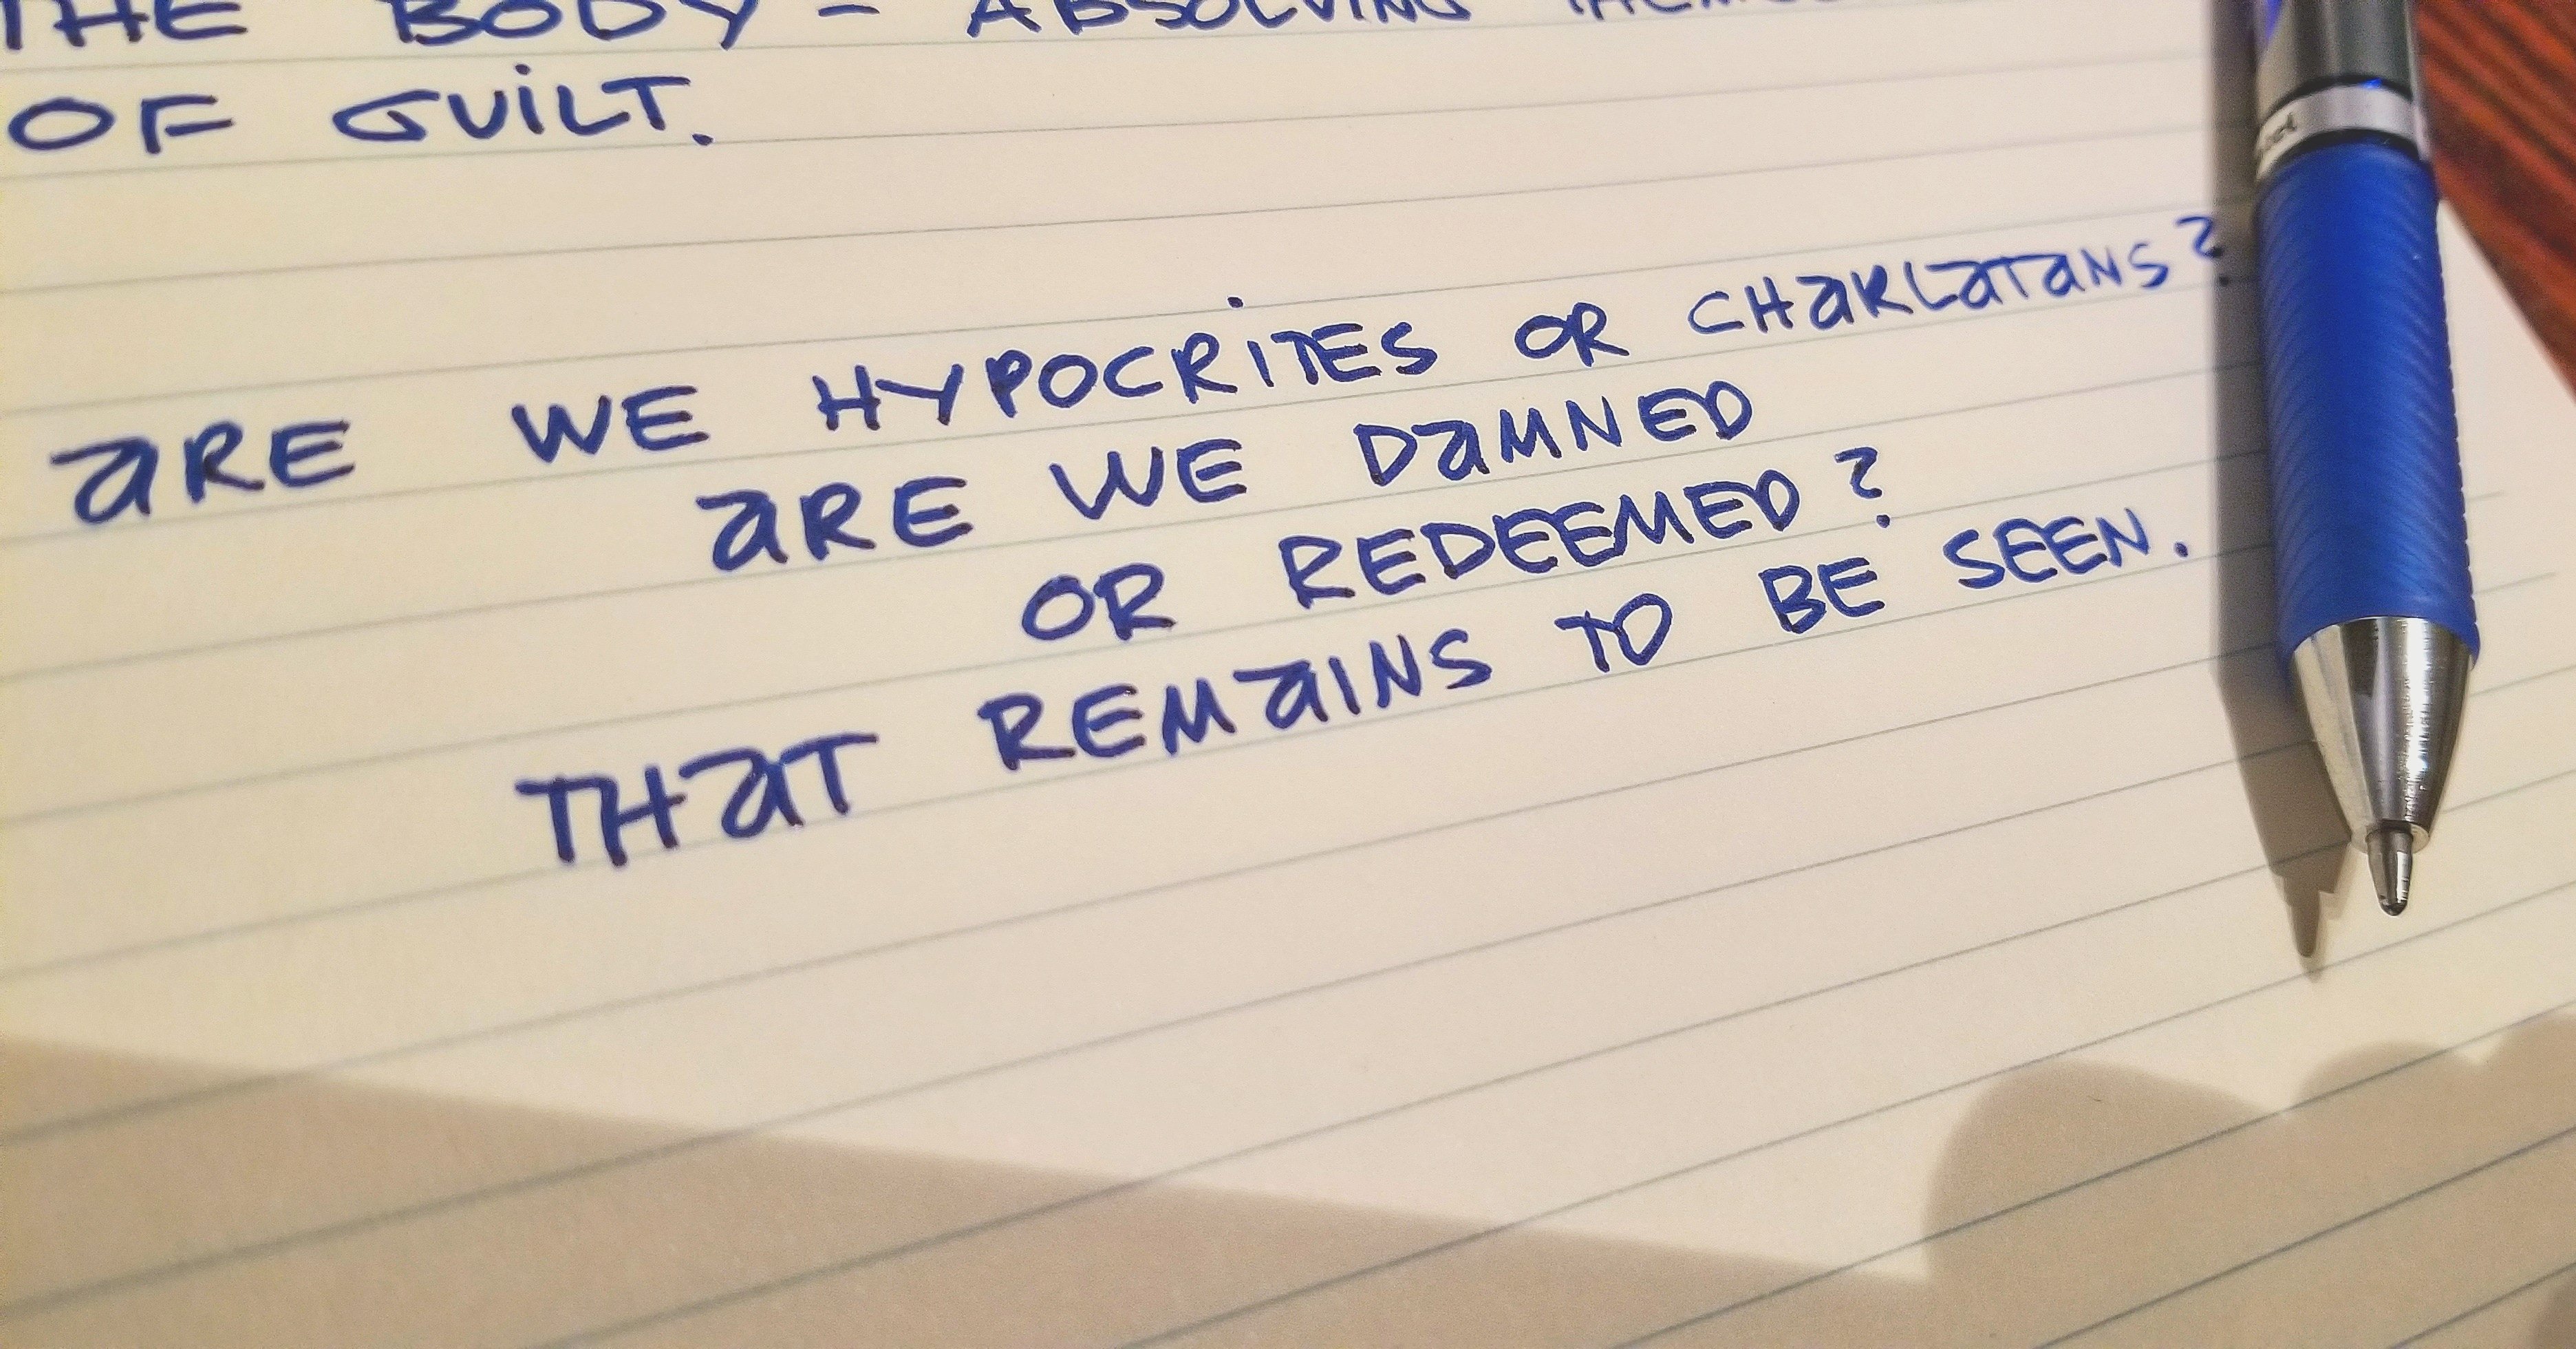 THE BODY - ABSOLVING
OF GUILT.
ARE WE HYPOCRITES OR CHARLATANS?
ARE WE DAMNED
OR REDEEMED?
THAT REMAINS TO BE SEEN.